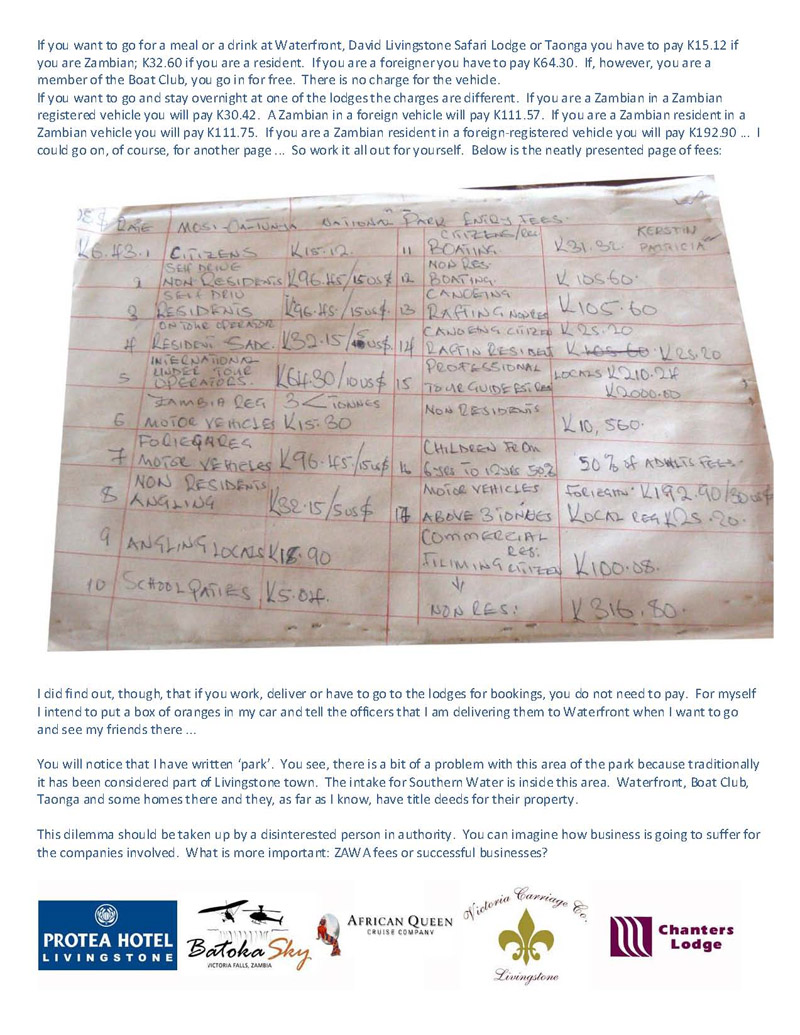 If you want to go for a meal or a drink at Waterfront, David Livingstone Safari Lodge or Taonga you have to pay K15.12 if
you are Zambian; K32.60 if you are a resident.  If you are a foreigner you have to pay K64.30.  If, however, you are a
member of the Boat Club, you go in for free.  There is no charge for the vehicle.
If you want to go and stay overnight at one of the lodges the charges are different.  If you are a Zambian in a Zambian
registered vehicle you will pay K30.42.  A Zambian in a foreign vehicle will pay K111.57.  If you are a Zambian resident in a
Zambian vehicle you will pay K111.75.  If you are a Zambian resident in a foreign-registered vehicle you will pay K192.90 ...  I
could go on, of course, for another page ...  So work it all out for yourself.  Below is the neatly presented page of fees:
RATE MOSI-OA-TUNYA NATIONAL PARK ENTRY FEES
KERSTIN
PATRICIA
CITIZENS K15.12
SELF DRIVE
2 NON RESIDENTS K96.45/15US$
SELF DRIV
3 RESIDENTS K96.45/15US$
ON TOUR OPERATOR
4 RESIDENT SADC. K32.15/5US$
INTERNATIONAL
UNDER TOUR
5 OPERATORS. K64.30/10US$
ZAMBIA REG 3< TONNES
6 MOTOR VEHICLES K15.30
FORIEGN REG
7 MOTOR VEHICLES K96.45/15US$
NON RESIDENTS
8 ANGLING K32.15/5US$
9 ANGLING LOCALS K18.90
10 SCHOOL PATIES K5.04
CITIZENS/RES
11 BOATING K31.32
NON RES.
12 BOATING K105.60
CANOEING
13 RAFTING NON RES K105.60
CANOENG CITIZEN K25.20
14 RAFTIN RESIDENT K105.60 K25.20
PROFESSIONAL LOCALS K210.24
15 TOUR GUIDES RES K2000.00
NON RESIDENTS K10,560.
CHILDREN FROM
16 6YRS TO 12YRS 50% 50% of ADULTS FEES
MOTOR VEHICLES FORIEGN K192.90/30US$
17 ABOVE 3 TONNES LOCAL REG K25.20.
COMMERCIAL
RES:
FILIMING CITIZEN K100.08.
NON RES: K316.80.
I did find out, though, that if you work, deliver or have to go to the lodges for bookings, you do not need to pay.  For myself
I intend to put a box of oranges in my car and tell the officers that I am delivering them to Waterfront when I want to go
and see my friends there ...
You will notice that I have written 'park'.  You see, there is a bit of a problem with this area of the park because traditionally
it has been considered part of Livingstone town.  The intake for Southern Water is inside this area.  Waterfront, Boat Club,
Taonga and some homes there and they, as far as I know, have title deeds for their property.
This dilemma should be taken up by a disinterested person in authority.  You can imagine how business is going to suffer for
the companies involved.  What is more important: ZAWA fees or successful businesses?
PROTEA HOTEL
LIVINGSTONE
Batoka Sky
VICTORIA FALLS, ZAMBIA
AFRICAN QUEEN
CRUISE COMPANY
Victoria Carriage Co.
Livingstone
Chanters
Lodge